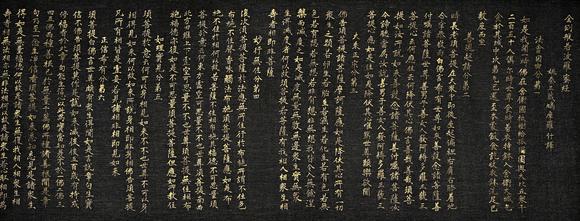 金剛般若波羅蜜經
姚秦三藏鳩摩羅什譯
法會因由分第一
如是我聞一時佛在舍衛國祇樹給孤獨園與大比丘眾千
二百五十人俱爾時世尊食時著衣持鉢入舍衛大城乞
食於其城中次第乞已還至本處飯食訖收衣鉢洗足已
敷座而坐
善現起請分第二
時長老須菩提在大眾中即從座起偏袒右肩右膝著地
合掌恭敬而白佛言希有世尊如來善護念諸菩薩善
付囑諸菩薩世尊善男子善女人發阿耨多羅三藐三
菩提心應云何住云何降伏其心佛言善哉善哉須菩
提如汝所說如來善護念諸菩薩善付囑諸菩薩汝
今諦聽當為汝說善男子善女人發阿耨多羅三藐三
菩提心應如是住如是降伏其心唯然世尊願樂欲聞
大乘正宗分第三
佛告須菩提諸菩薩摩訶薩應如是降伏其心所有一切
眾生之類若卵生若胎生若濕生若化生若有色若無
色若有想若無想若非有想非無想我皆令入無餘涅
槃而滅度之如是滅度無量無數無邊眾生實無眾
生得滅度者何以故須菩提若菩薩有我相人相眾生相
壽者相即非菩薩
妙行無住分第四
復次須菩提菩薩於法應無所住行於布施所謂不住色
布施不住聲香味觸法布施須菩提菩薩應如是布施
不住於相何以故若菩薩不住相布施其福德不可思量須
菩提於意云何東方虛空可思量不不也世尊須菩提南西
北方四維上下虛空可思量不不也世尊須菩提菩薩無住相布
施福德亦復如是不可思量須菩提菩薩但應如所教住
如理實見分第五
須菩提於意云何可以身相見如來不不也世尊不可以身
相得見如來何以故如來所說身相即非身相佛告須菩提
凡所有相皆是虛妄若見諸相非相即見如來
正信希有分第六
須菩提白佛言世尊頗有眾生得聞如是言說章句生實
信不佛告須菩提莫作是說如來滅後後五百歲有持戒
修福者於此章句能生信心以此為實當知是人不於一佛二佛三
四五佛而種善根已於無量千萬佛所種諸善根聞是章
句乃至一念生淨信者須菩提如來悉知悉見是諸眾生
得如是無量福德何以故是諸眾生無復我相人相眾生相
壽者相無法相亦無非法相何以故是諸眾生若心取相